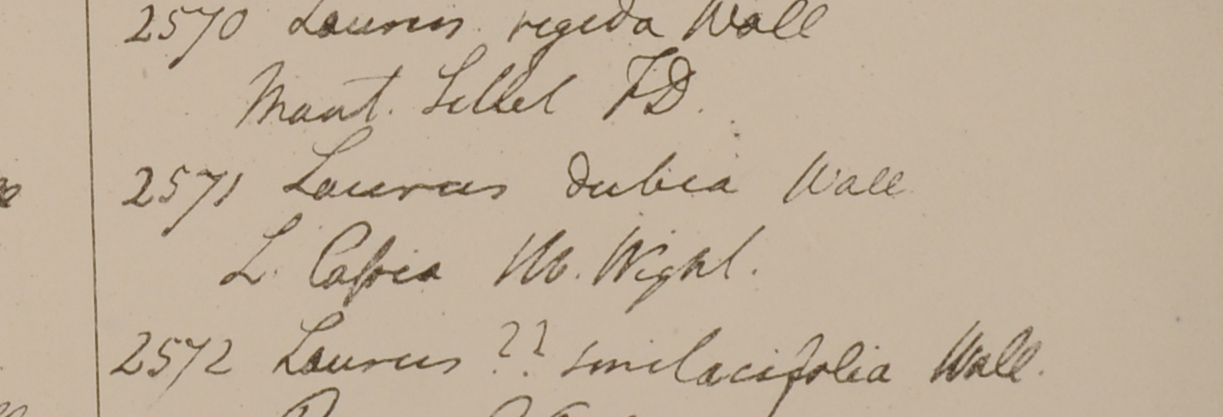 2570 Laurus rigida Wall
Mont. Sillet FD.
2571 Laurus dubia Wall
L. Cassia Hb. Wight.
2572 Laurus ?? smilacifolia Wall.